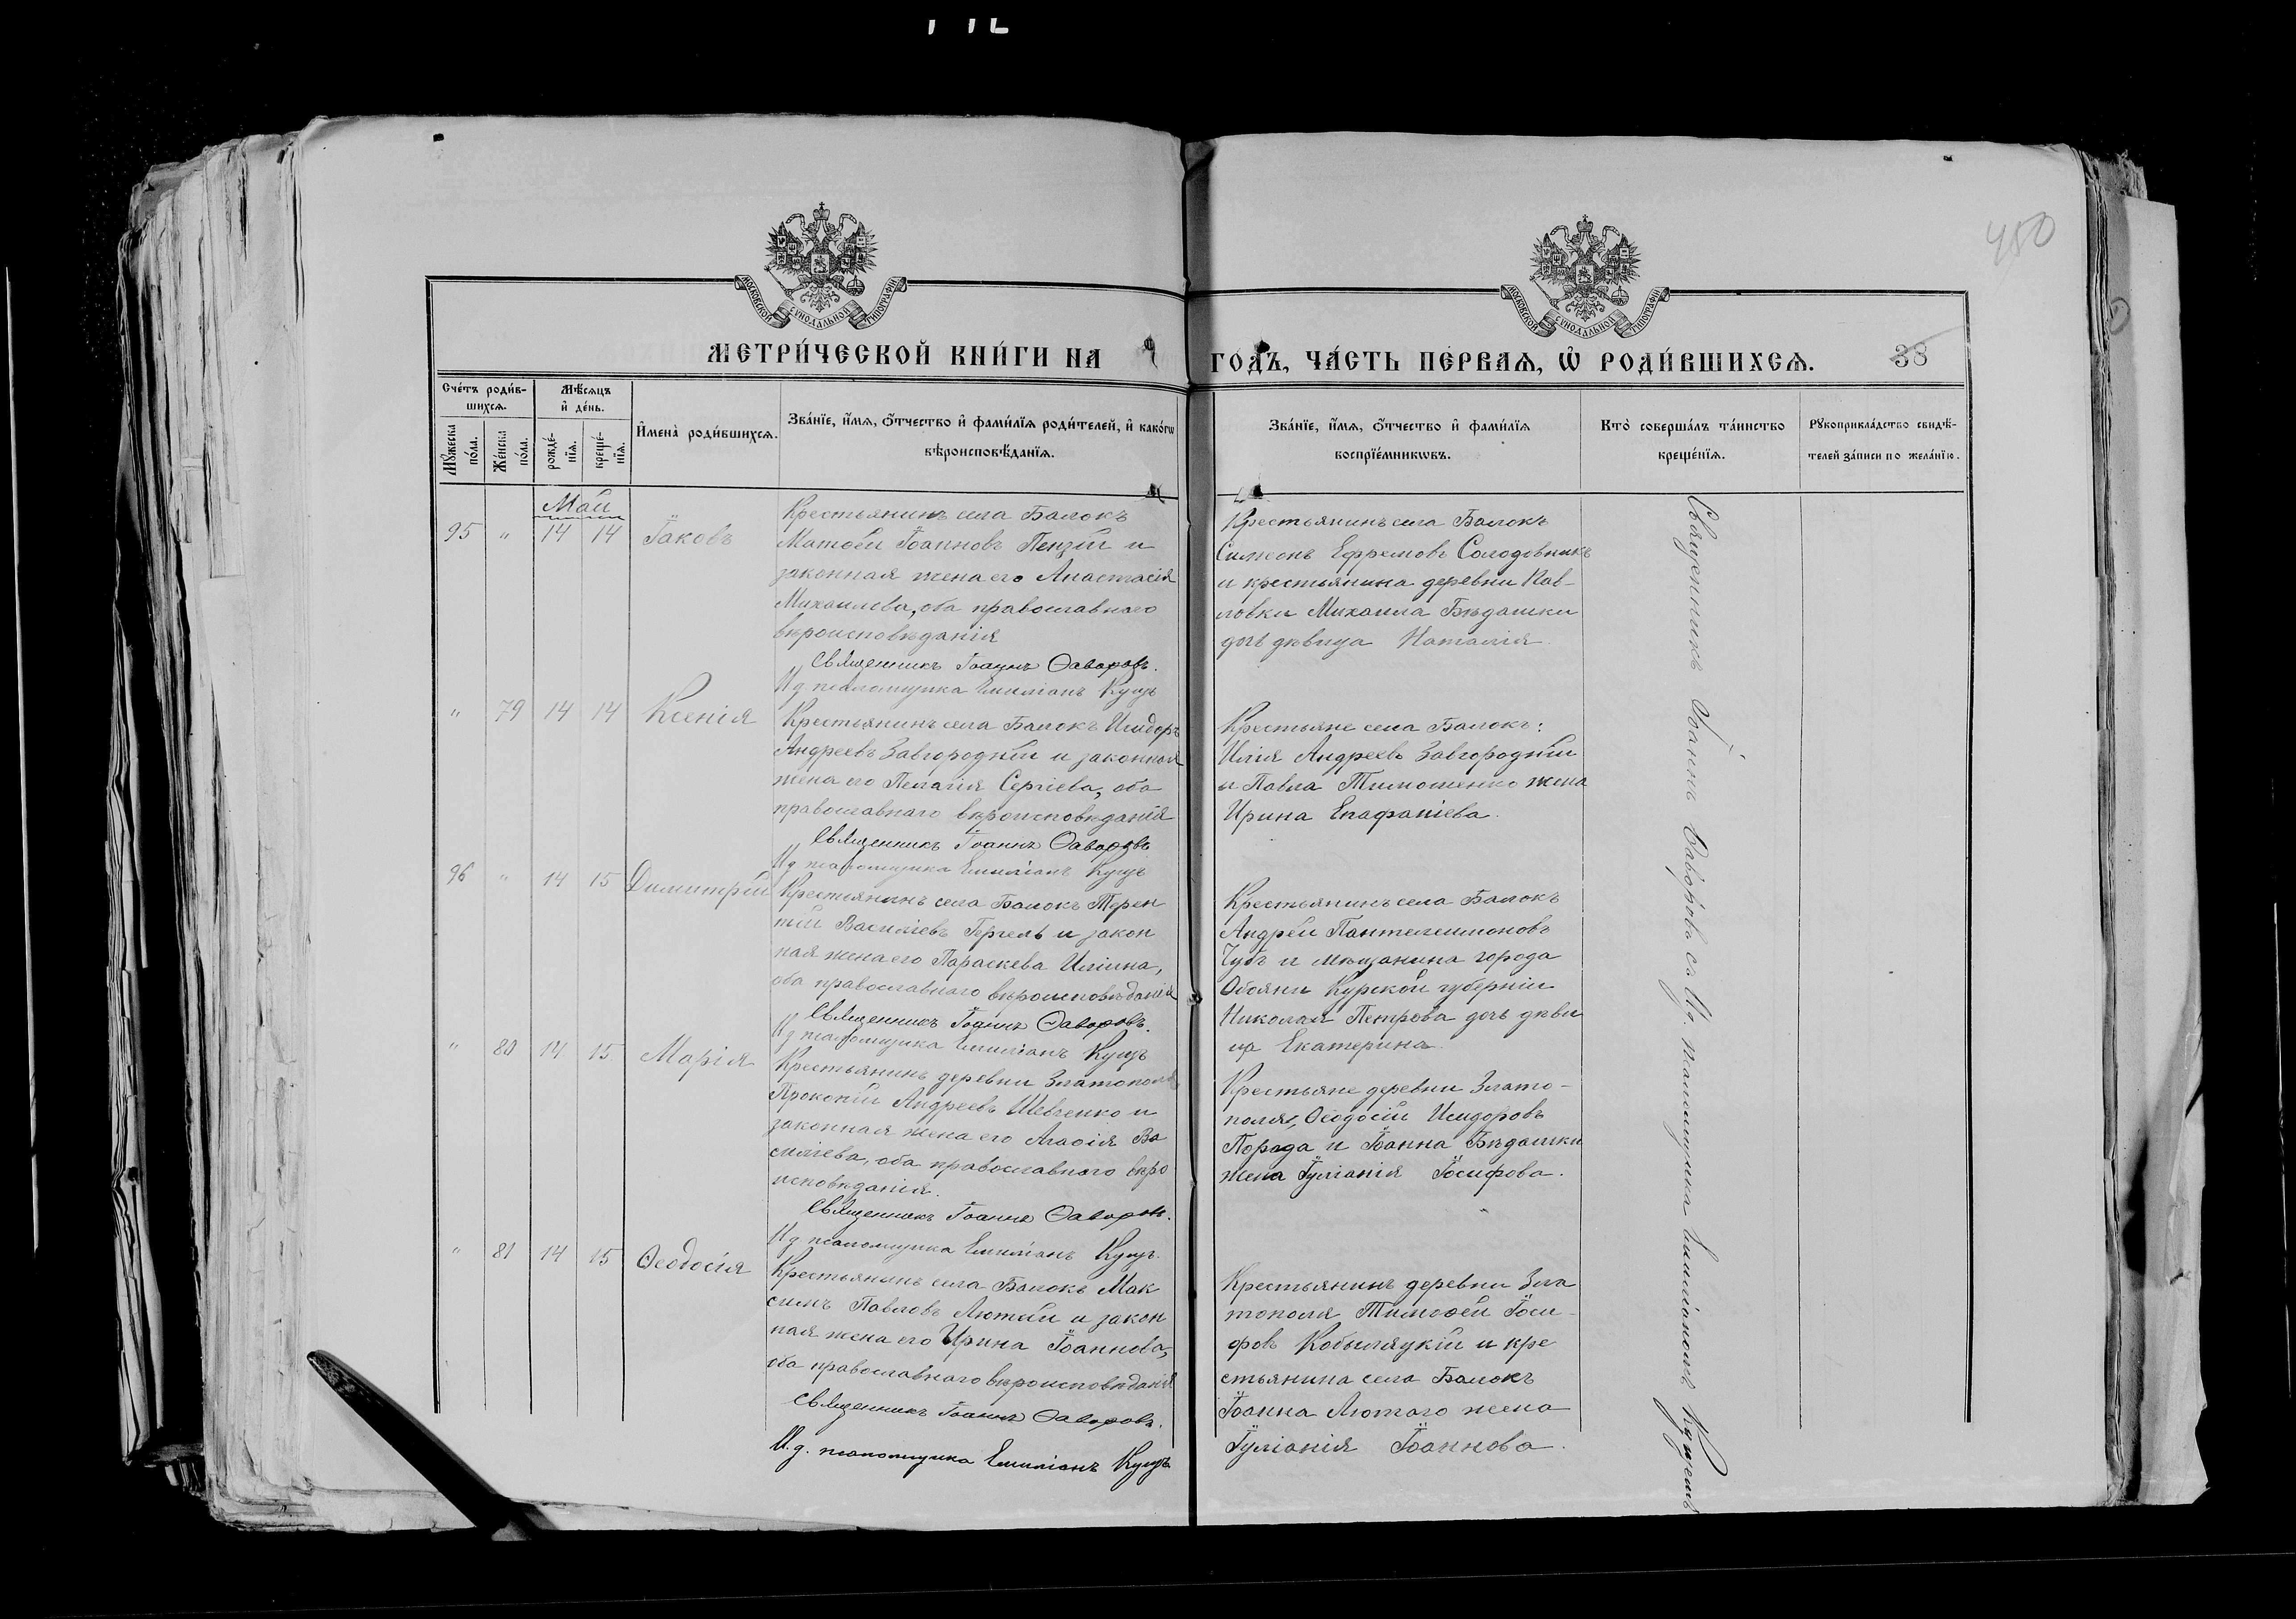 450
МОСКОВСКОЙ СУНОДАЛЬНОЙ ТИПОГРАФІИ
МОСКОВСКОЙ СУНОДАЛЬНОЙ ТИПОГРАФІИ
МЕТРИ́ЧЕСКОЙ КНИ́ГИ НА
ГО́ДЪ, ЧА́СТЬ ПЕ́РВАѦ, Ѡ҆ РОДИ́ВШИХСѦ.
38
Сче́тъ роди́в-
шихсѧ.
Мѣ́сѧцъ
и҆ де́нь.
Мꙋ́жеска
по́ла.
Же́нска
по́ла.
рожде́-
нїѧ.
креще́-
нїѧ.
И҆мена̀ роди́вшихсѧ.
Зва́нїе, и҆́мѧ, ѻ҆́тчество и҆ фами́лїѧ роди́телей, и҆ како́гѡ
вѣроисповѣ́данїѧ.
Зва́нїе, и҆́мѧ, ѻ҆́тчество и҆ фами́лїѧ
воспрїе́мникѡвъ.
Кто̀ соверша́лъ та́инство
креще́нїѧ.
Рꙋкоприкла́дство свидѣ́-
телей за́писи по жела́нїю.
Май
95 " 14 14 Іаковъ
Крестьянинъ села Балокъ
Матѳей Іоанновъ Пензій и
законная жена его Анастасія
Михаилова, оба православнаго
вѣроисповѣданія
Священникъ Іоаннъ Ѳаворовъ.
И д псаломщика Емиліанъ Кущъ
Крестьянинъ села Балокъ
Симеонъ Ефремовъ Солодовникъ
и крестьянина деревни Пав-
ловки Михаила Бѣдашки
дочь дѣвица Наталія
" 79 14 14 Ксенія
Крестьянинъ села Балокъ Исидоръ
Андреевъ Завгородній и законная
жена его Пелагія Сергіева, оба
православнаго вѣроисповѣданія
Священникъ Іоаннъ Ѳаворовъ
И д псаломщика Емиліанъ Кущъ
Крестьяне села Балокъ:
Илія Андреевъ Завгородній
и Павла Тимошенко жена
Ирина Епафаніева.
96 " 14 15 Димитрій
Крестьянинъ села Балокъ Терен
тій Василіевъ Гергель и закон
ная жена его Параскева Иліина,
оба православнаго вѣроисповѣданія
Священникъ Іоаннъ Ѳаворовъ.
И д псаломщика Емиліанъ Кущъ
Крестьянинъ села Балокъ
Андрей Пантелеимоновъ
Чубъ и мѣщанина города
Обояни Курской губерніи
Николая Петрова дочь дѣви
ца Екатерина.
" 80 14 15 Марія
Крестьянинъ деревни Златополя
Прокопій Андреевъ Шевченко и
законная жена его Агаѳія Ва
силіева, оба православнаго вѣро
исповѣданія.
Священникъ Іоаннъ Ѳаворовъ.
И д псаломщика Емиліанъ Кущъ.
Крестьяне деревни Злато-
поля, Ѳеодосій Исидоровъ
Порада и Іоанна Бѣдашки
жена Іуліанія Іосифова.
" 81 14 15 Ѳеодосія
Крестьянинъ села Балокъ Мак
симъ Павловъ Лютый и закон
ная жена его Ирина Іоаннова,
оба православнаго вѣроисповѣданія
Священникъ Іоаннъ Ѳаворовъ.
И. д. псаломщика Емиліанъ Кущъ
Крестьянинъ деревни Зла
тополя Тимоѳей Іоси-
фовъ Кобыляцкій и кре
стьянина села Балокъ
Іоанна Лютаго жена
Іуліанія Іоаннова.
Священникъ Іоаннъ Ѳаворовъ съ И.д. псаломщика Емиліаномъ Кущемъ